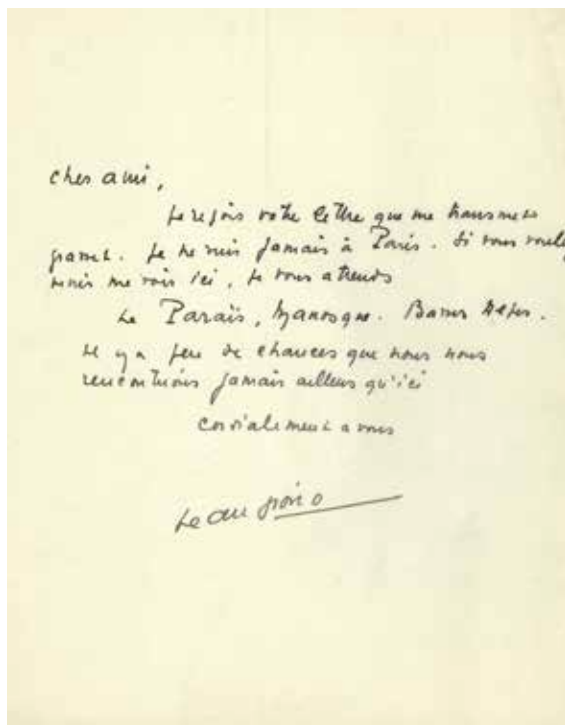 cher ami,
Je reçois votre lettre que me transmet
Je ne suis jamais à Paris. Si vous voulez
venir me voir ici, je vous attends
Le Paraïs, Manosque. Basses Alpes.
Il y a peu de chances que nous nous
rencontrions jamais ailleurs qu'ici
Cordialement a vous
Jean Giono